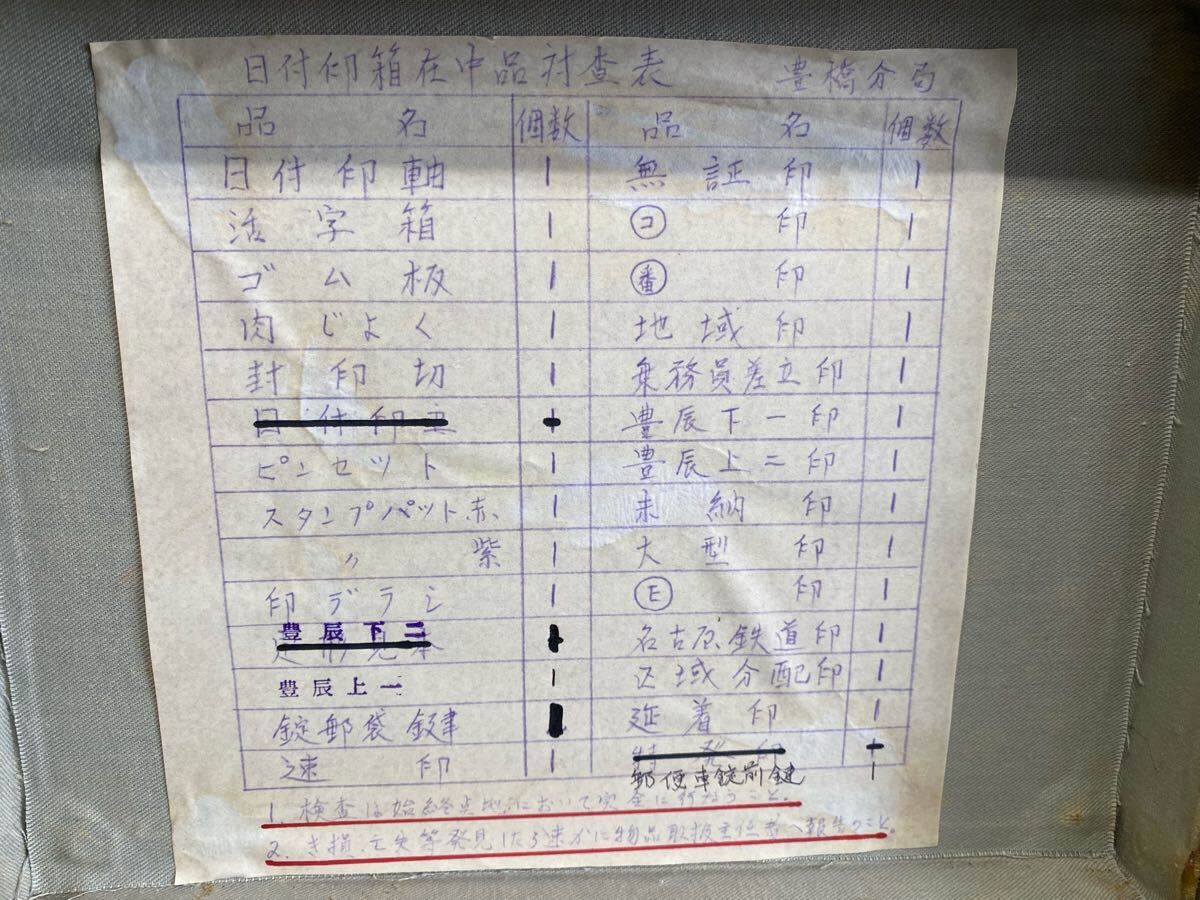 日付印箱在中品対査表 豊橋分局
品名 個数 品名 個数
日付印軸 1 無証印 1
活字箱 1 コ印 1
ゴム板 1 番印 1
肉じよく 1 地域印 1
封印切 1 乗務員差立印 1
日付印 豊辰下一印 1
ピンセット 1 豊辰上二印 1
スタンプパット赤 1 未納印 1
〃 紫 1 大型印 1
印デラシ 1 E印 1
豊辰下二 名古屋鉄道印 1
豊辰上一 1 区域分配印 1
錠郵袋鍵 延着印 1
速印 1
郵便車錠前鍵 1
1. 検査は始終点地において完全に行なうこと。
2. き損、亡失等発見したら速かに物品取扱主任者へ報告のこと。